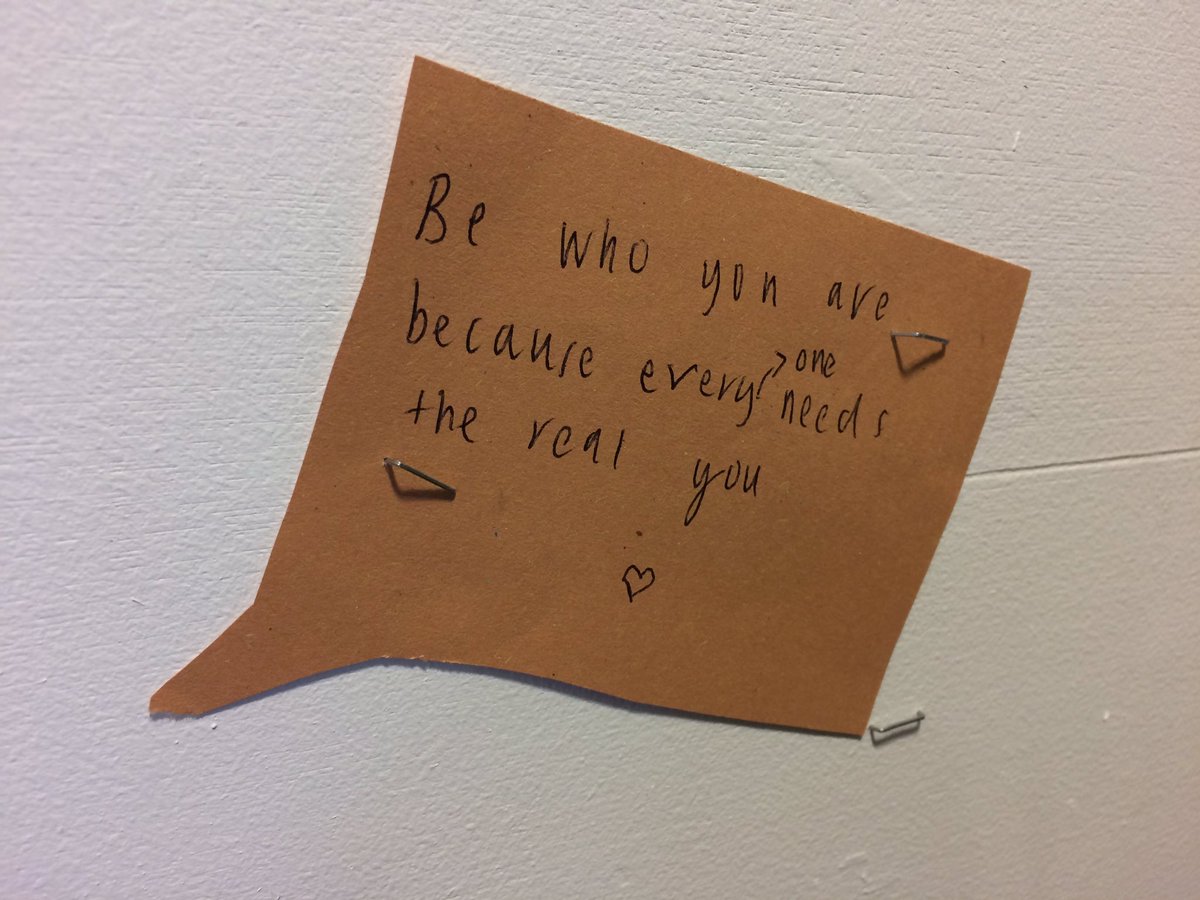 Be who you are
because everyone needs
the real you
♡